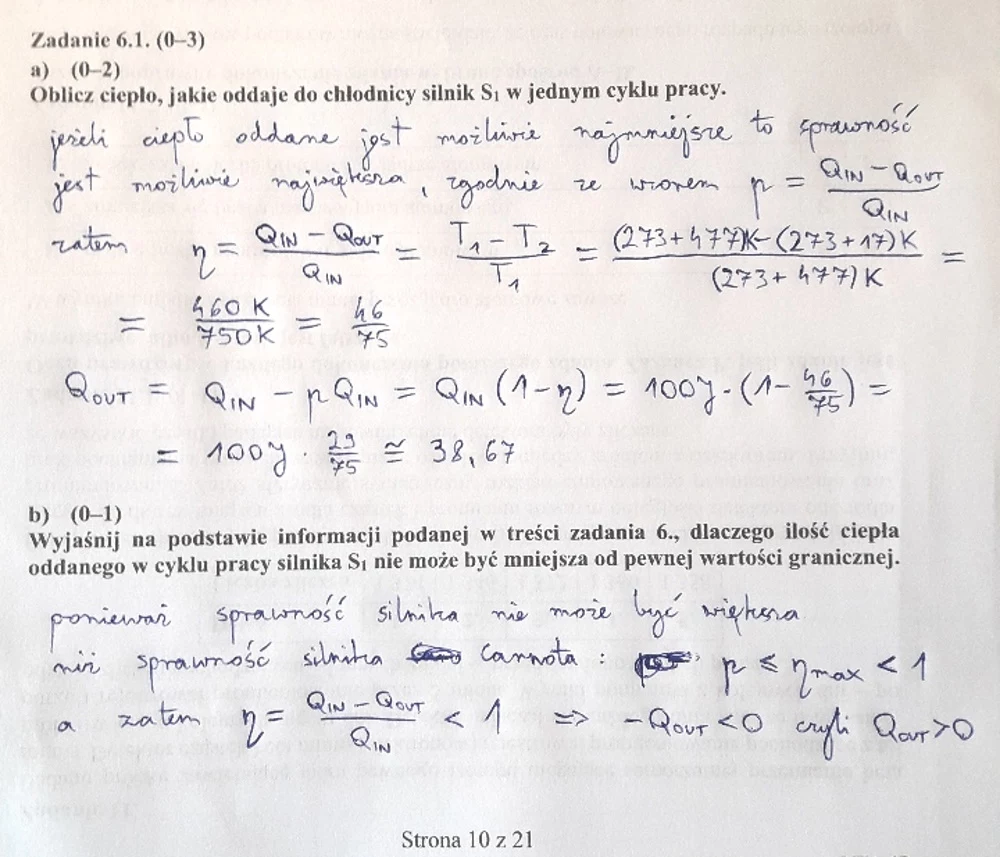 Zadanie 6.1. (0–3)
a) (0–2)
Oblicz ciepło, jakie oddaje do chłodnicy silnik S₁ w jednym cyklu pracy.
jeżeli ciepło oddane jest możliwie najmniejsze to sprawność
jest możliwie największa, zgodnie ze wzorem η = (Q_IN − Q_OUT)/Q_IN
zatem η = (Q_IN − Q_OUT)/Q_IN = (T₁ − T₂)/T₁ = ((273+477)K − (273+17)K)/((273+477)K) =
= 460 K/750 K = 46/75
Q_OUT = Q_IN − η Q_IN = Q_IN (1−η) = 100 J · (1 − 46/75) =
= 100 J · 29/75 ≅ 38,67
b) (0–1)
Wyjaśnij na podstawie informacji podanej w treści zadania 6., dlaczego ilość ciepła
oddanego w cyklu pracy silnika S₁ nie może być mniejsza od pewnej wartości granicznej.
ponieważ sprawność silnika nie może być większa
niż sprawność silnika carnota : η ≤ η_max < 1
a zatem η = (Q_IN − Q_OUT)/Q_IN < 1 => − Q_OUT < 0 czyli Q_OUT > 0
Strona 10 z 21